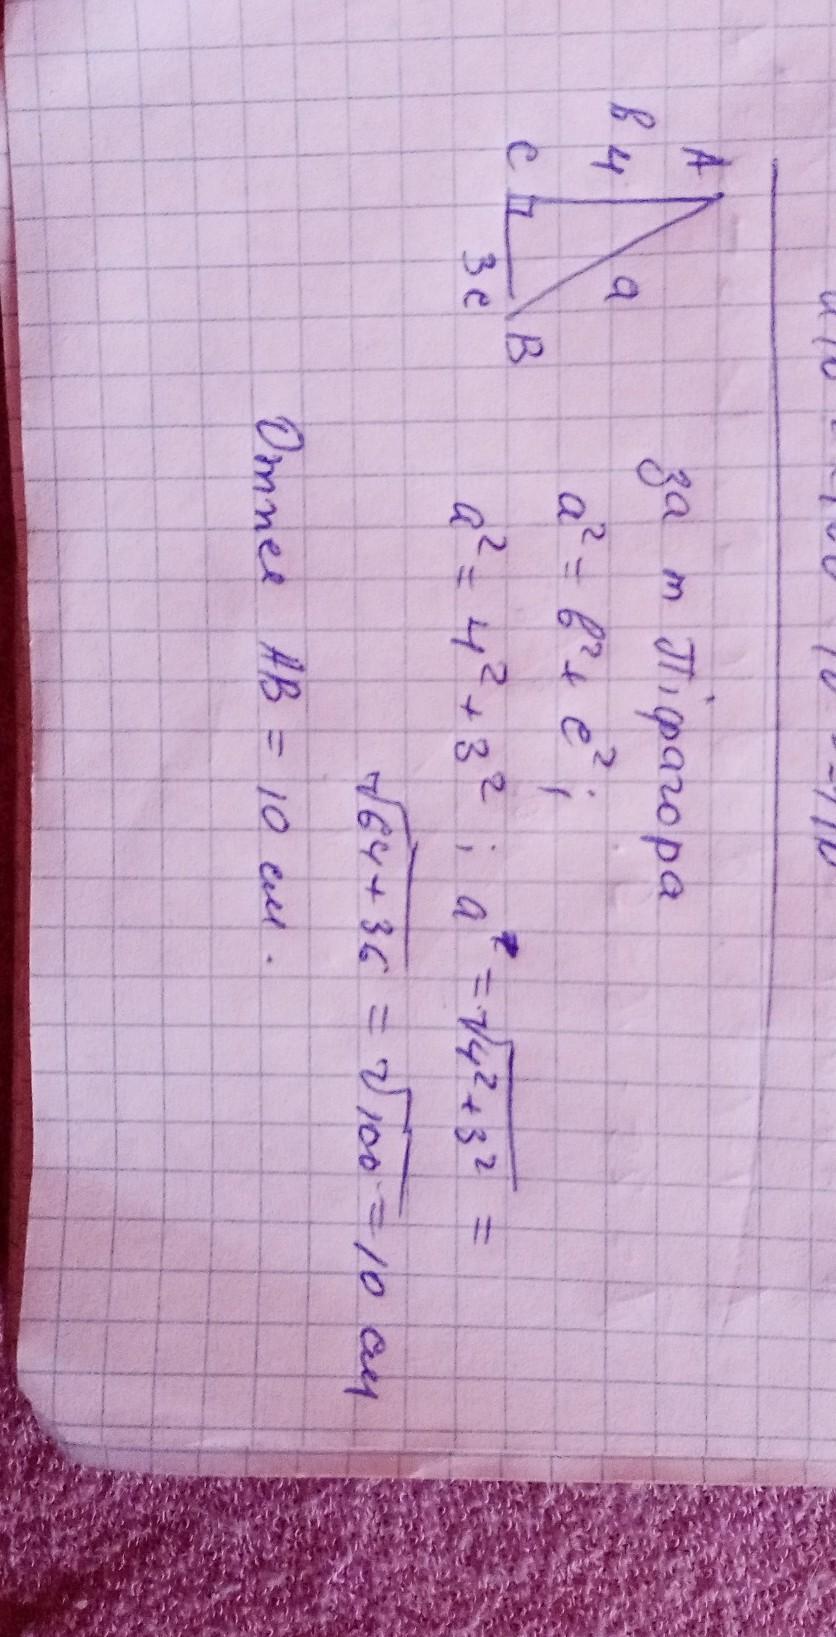 A
в 4
a
C
3 c
B
За т Піфагора
a² = в² + c² ;
a² = 4² + 3² ; a = √4² + 3² =
√64 + 36 = √100 = 10 см
Отже AB = 10 см.